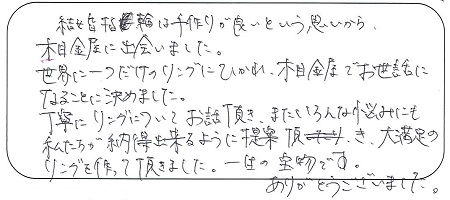 結婚指輪は手作りが良いという思いから、
木目金屋に出会いました。
世界に一つだけのリングにひかれ、木目金屋でお世話に
なることに決めました。
丁寧にリングについてお話頂き、またいろんな悩みにも
私たちが納得出来るように提案頂き、大満足の
リングを作って頂きました。一生の宝物です。
ありがとうございました。